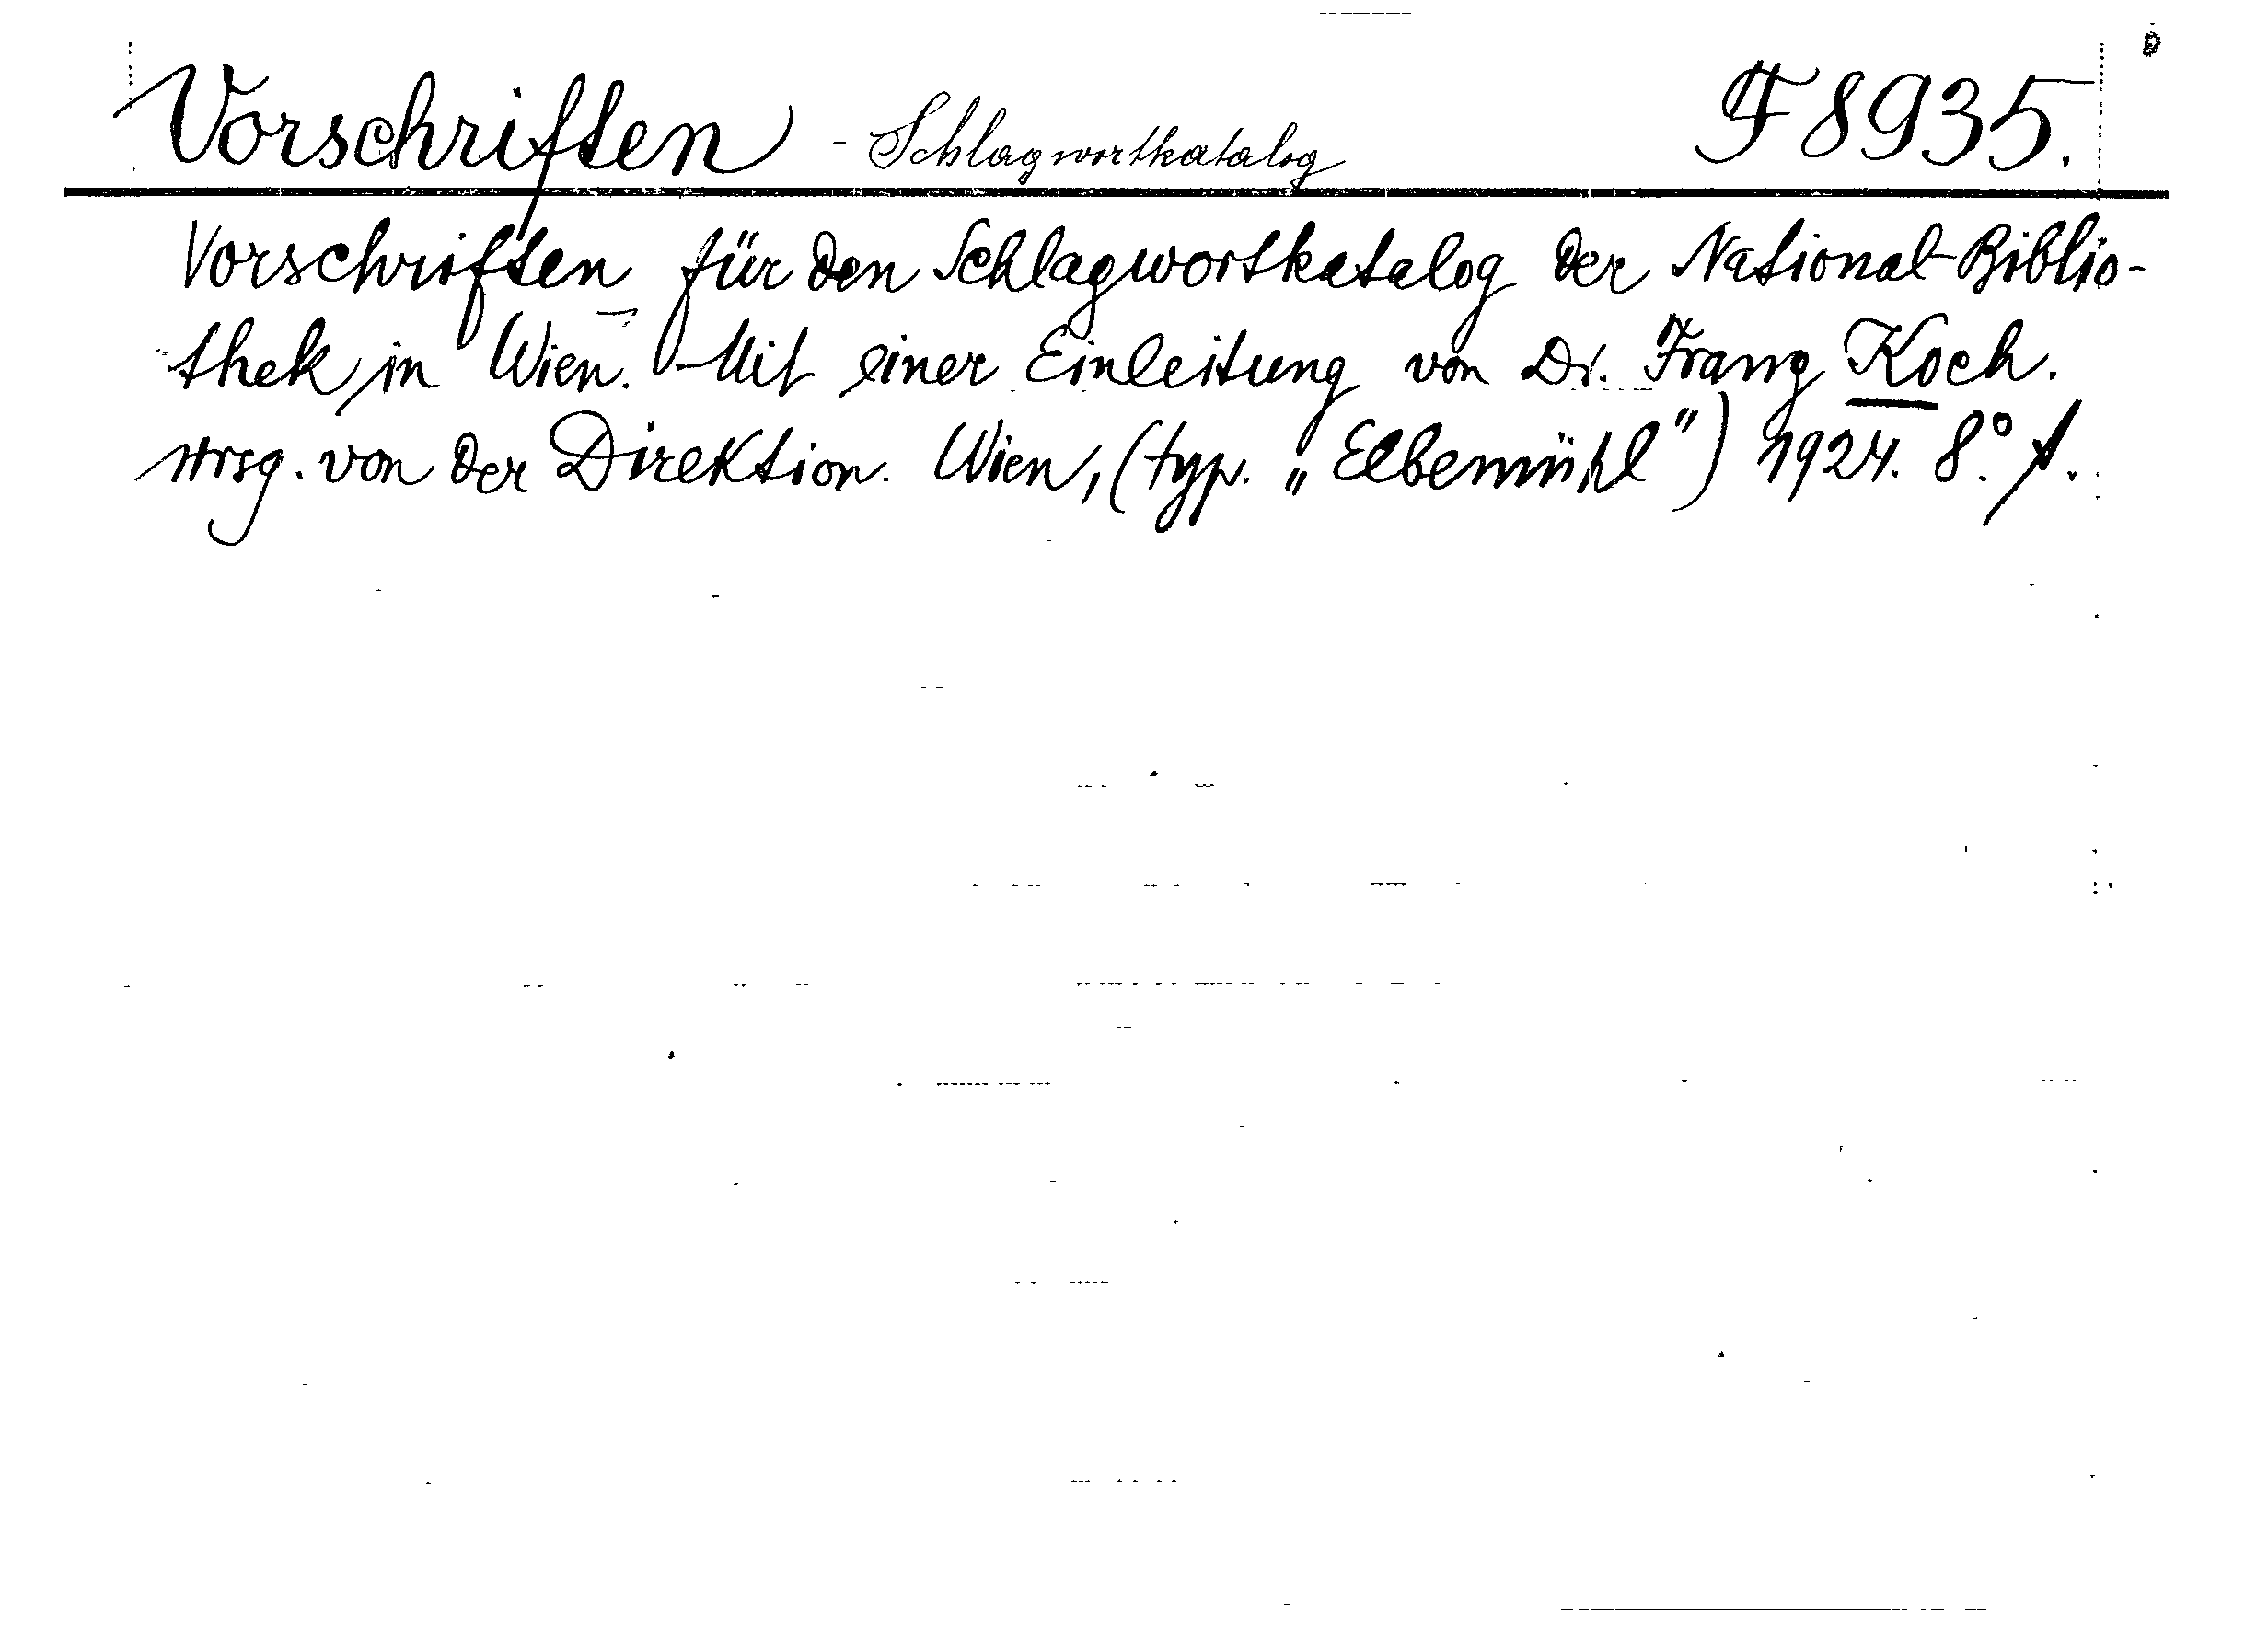 Vorschriften - Schlagwortkatalog F 8935.
Vorschriften für den Schlagwortkatalog der National-Biblio-
thek in Wien. Mit einer Einleitung von Dr. Franz Koch.
Hrsg. von der Direktion. Wien, (typ. „Elbemühl") 1924. 8.°